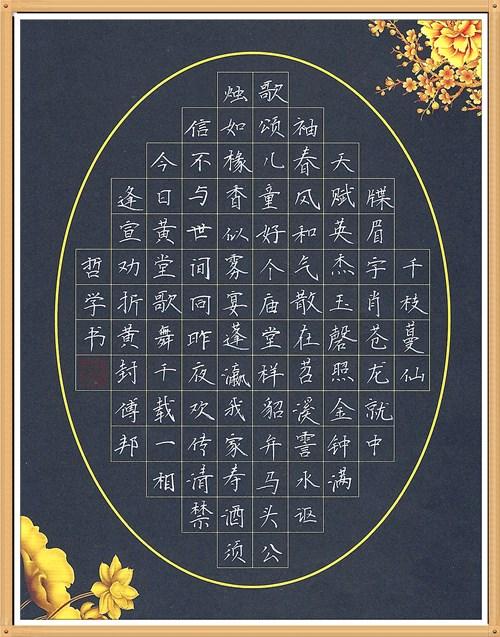 千枝蔓仙
牒眉宇肖苍龙就中
天赋英杰玉磬照金钟满
袖春风和气散在苕溪霅水讴
歌颂儿童好个庙堂样貂弁马头公
烛如椽香似雾宴蓬瀛我家寿酒须
信不与世间同昨夜欢传清禁
今日黄堂歌舞千载一相
逢宣劝折黄封傅邦
哲学书